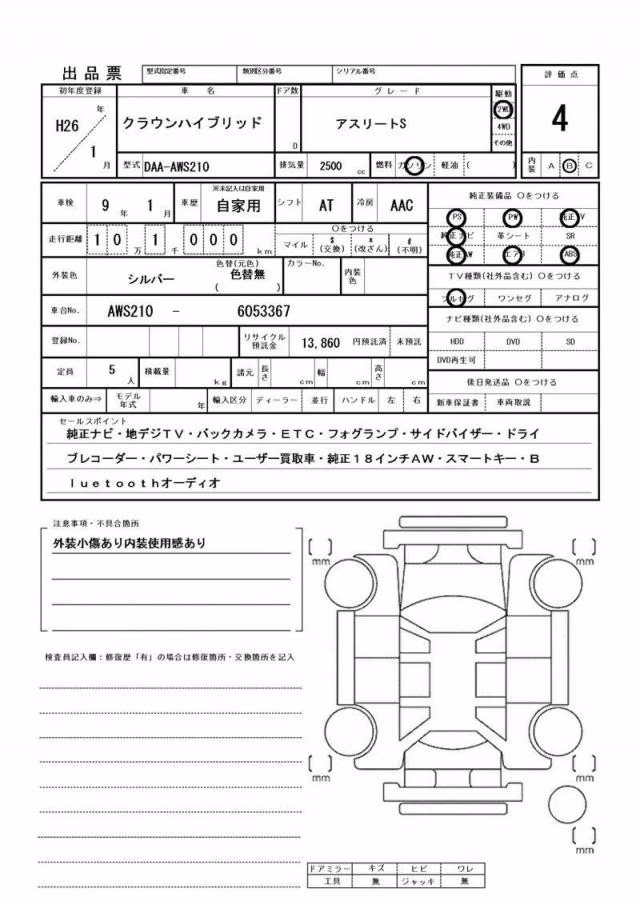 出品票 型式指定番号 類別区分番号 シリアル番号 評価点
初年度登録 車名 ドア数 グレード 駆動
H26 年 クラウンハイブリッド D アスリートS 2WD 4
1 月 4WD
その他
型式 DAA-AWS210 排気量 2500 cc 燃料 ガソリン 軽油 ( ) 内装 A B C
車検 9 年 1 月 車歴 ※未記入は自家用 自家用 シフト AT 冷房 AAC 純正装備品 Oをつける
走行距離 1 0 万 1 千 0 0 0 km Oをつける マイル $ (交換) x (改ざん) # (不明) PS PW 純正TV
純正ナビ 革シート SR
純正AW エアB ABS
外装色 シルバー 色替(元色) 色替無 ( ) カラーNo. 内装色 TV種類(社外品含む) Oをつける
フルセグ ワンセグ アナログ
車台No. AWS210 - 6053367 ナビ種類(社外品含む) Oをつける
登録No. リサイクル預託金 13,860 円預託済 未預託 HDD DVD SD
DVD再生可
定員 5 人 積載量 kg 諸元 長さ cm 幅 cm 高さ cm 後日発送品 Oをつける
輸入車のみ⇒ モデル年式 年 輸入区分 ディーラー 並行 ハンドル 左 右 新車保証書 車両取説
セールスポイント
純正ナビ・地デジTV・バックカメラ・ETC・フォグランプ・サイドバイザー・ドライ
ブレコーダー・パワーシート・ユーザー買取車・純正18インチAW・スマートキー・B
luetoothオーディオ
注意事項・不具合箇所
外装小傷あり内装使用感あり
検査員記入欄:修復歴「有」の場合は修復箇所・交換箇所を記入
[ ] mm [ ] mm
[ ] mm [ ] mm
[ ] mm
ドアミラー キズ ヒビ ワレ
工具 無 ジャッキ 無